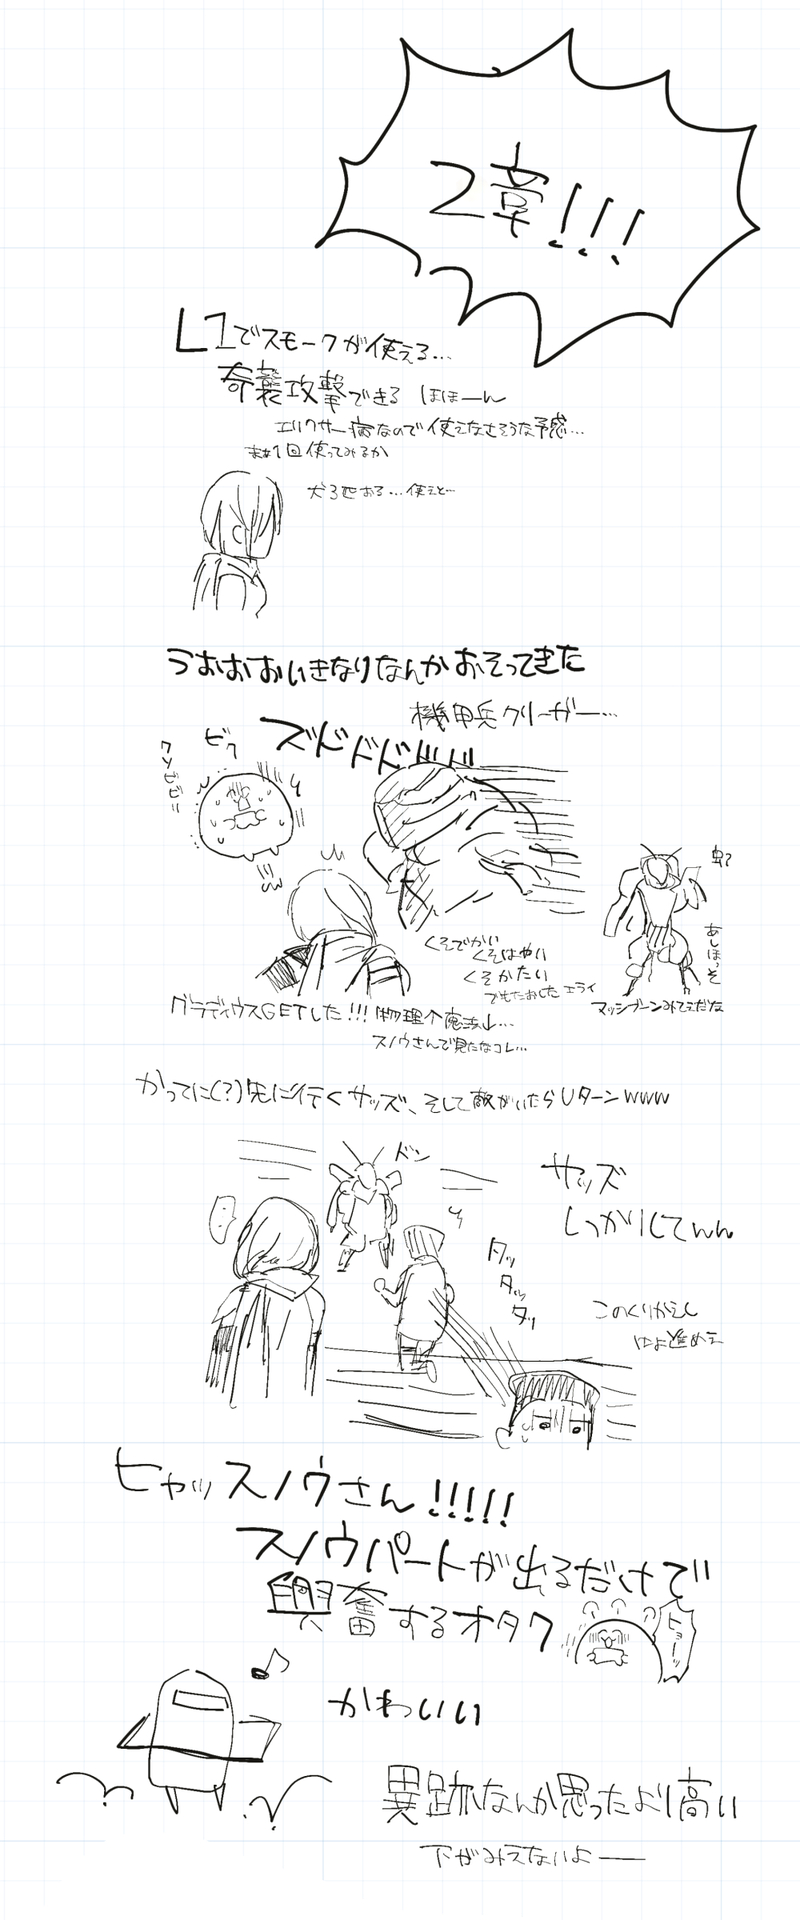 2章!!!
L1でスモークが使える…
奇襲攻撃できる ほほーん
エリクサー病なので使えなさそうな予感…
まぁ1回使ってみるか
犬3匹おる…使えと…
うおおおいきなりなんかおそってきた
機甲兵クリーガー…
ズドドドドドド
ビク
クソビビリ
虫?
あしほっそ
くそでかい
くそはやい
くそかたい
でもたおした エライ
マッシブーンみてぇだな
グラディウスGETした!!!物理个魔法小…
スノウさんで見たなコレ…
かってに(?)先に行くサッズ、そして敵がいたらUターンwww
ドン
…
サッズ
しっかりしてwん
タッ
タッ
タッ
このくりかえし
はよ進めェ
ヒャッスノウさん!!!!!
スノウパートが出るだけで
興奮するオタク
ヒョーッ
かわいい
異跡なんか思ったより高い
下がみえないよー